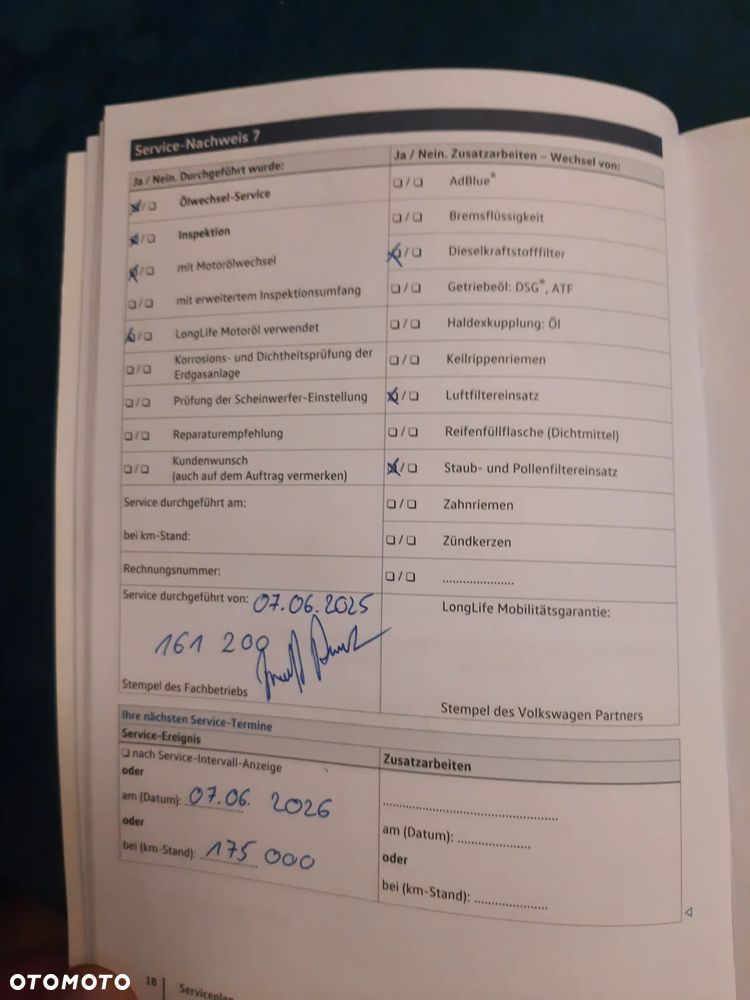 Service-Nachweis 7
Ja / Nein. Durchgeführt wurde:
☒/☐ Ölwechsel-Service
☒/☐ Inspektion
☒/☐ mit Motorölwechsel
☐/☐ mit erweitertem Inspektionsumfang
☒/☐ LongLife Motoröl verwendet
☐/☐ Korrosions- und Dichtheitsprüfung der
Erdgasanlage
☐/☐ Prüfung der Scheinwerfer-Einstellung
☐/☐ Reparaturempfehlung
☐/☐ Kundenwunsch
(auch auf dem Auftrag vermerken)
Service durchgeführt am:
bei km-Stand:
Rechnungsnummer:
Service durchgeführt von: 07.06.2025
161 200
Stempel des Fachbetriebs
Ja / Nein. Zusatzarbeiten – Wechsel von:
☐/☐ AdBlue®
☐/☐ Bremsflüssigkeit
☒/☐ Dieselkraftstofffilter
☐/☐ Getriebeöl: DSG®, ATF
☐/☐ Haldexkupplung: Öl
☐/☐ Keilrippenriemen
☒/☐ Luftfiltereinsatz
☐/☐ Reifenfüllflasche (Dichtmittel)
☒/☐ Staub- und Pollenfiltereinsatz
☐/☐ Zahnriemen
☐/☐ Zündkerzen
☐/☐ ......................
LongLife Mobilitätsgarantie:
Stempel des Volkswagen Partners
Ihre nächsten Service-Termine
Service-Ereignis
☐ nach Service-Intervall-Anzeige
oder
am (Datum): 07.06. 2026
oder
bei (km-Stand): 175 000
Zusatzarbeiten
......................................................
am (Datum): ......................
oder
bei (km-Stand): ......................
18 | Serviceplan
OTOMOTO